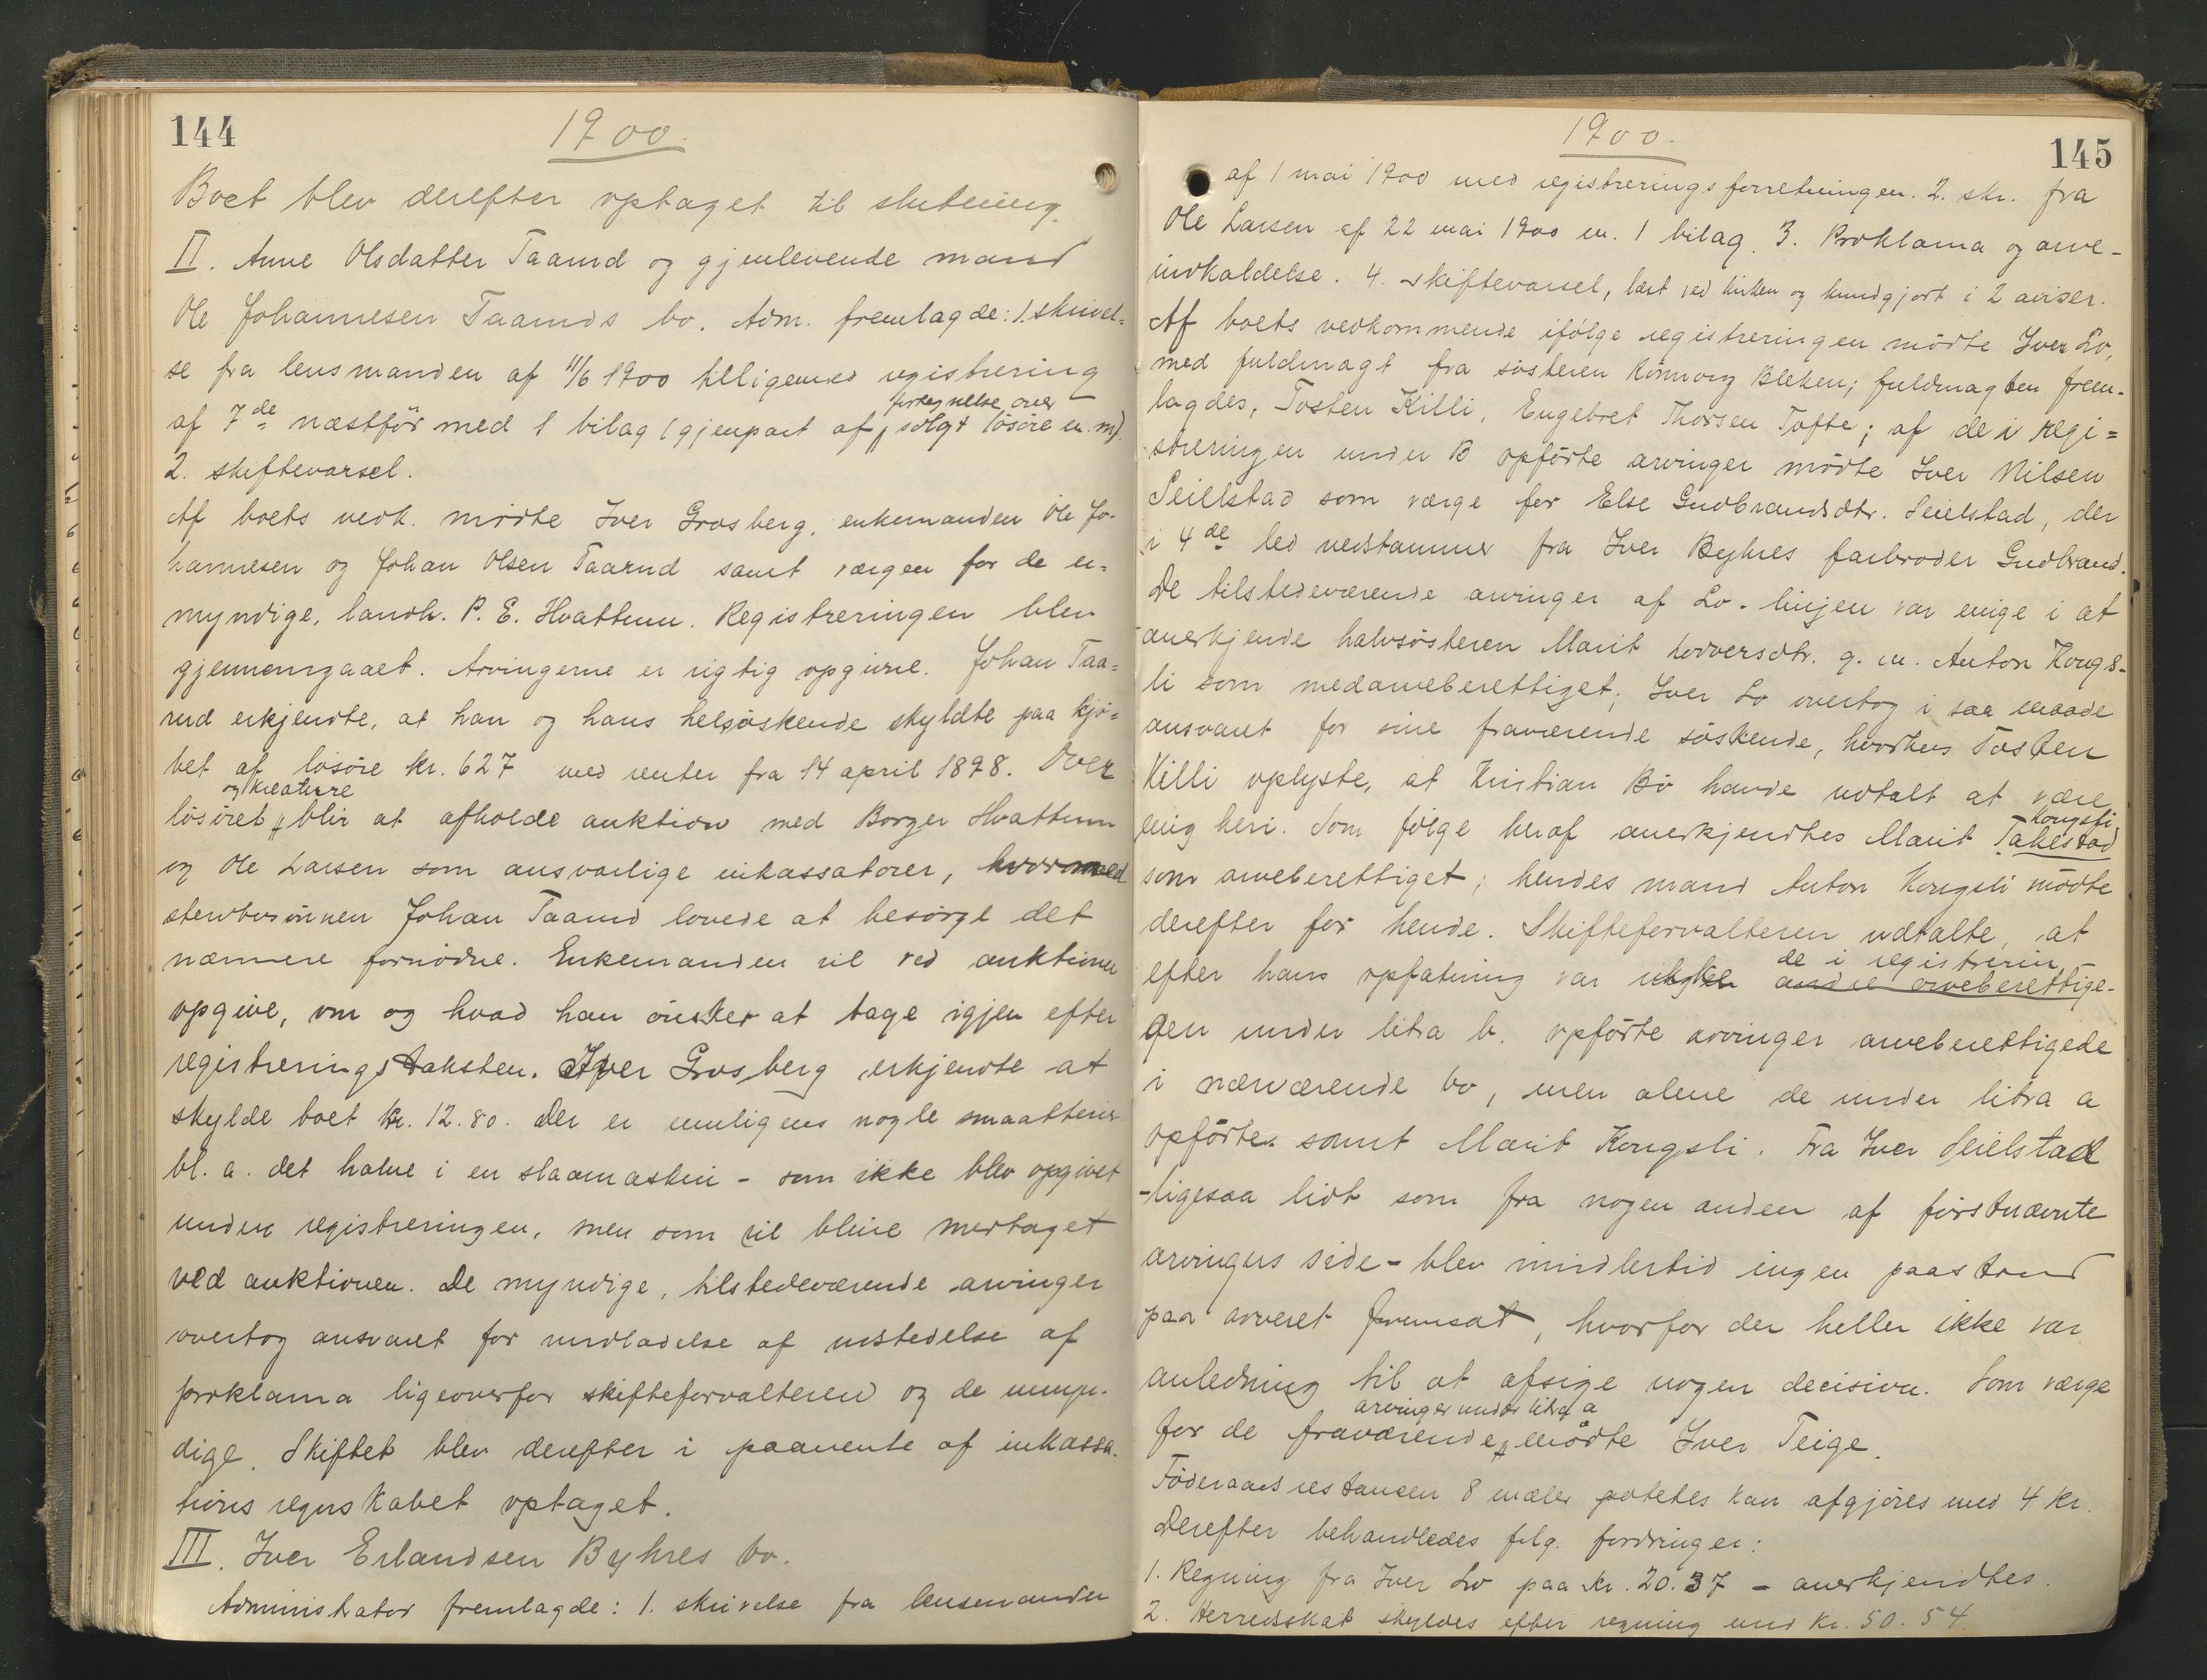 144
1900.
Boet blev derefter optaget til slutning.
II. Anne Olsdatter Taarud og gjenlevende mand
Ole Johannesen Taaruds bo. Adm. fremlagde: 1. skrivel-
se fra lensmanden af 11/6 1900 tilligemed registrering
af 7de næstfør med 1 bilag (gjenpart af fortegnelse over solgt løsøre m. m).
2. skiftevarsel.
Af boets vedk. mødte Iver Grosberg, enkemanden Ole Jo-
hannesen og Johan Olsen Taarud samt værgen for de u-
myndige, landh. P. E. Hvattum. Registreringen blev
gjennemgaaet. Arvingerne er rigtig opgivne. Johan Taa-
rud erkjendte, at han og hans helsøskende skyldte paa kjø-
bet af løsøre kr. 627 med renter fra 14 april 1898. Over
løsøret og kreaturene blir at afholde auktion med Borger Hvattum
og Ole Larsen som ansvarlige inkassatorer, hvormed
stervbosønnen Johan Taarud lovede at besørge det
nærmere fornødne. Enkemanden vil ved auktionen
opgive, om og hvad han ønsker at tage igjen efter
registreringstaksten. Iver Grosberg erkjendte at
skylde boet kr. 12.80. Der er muligens nogle smaatterier
bl. a. det halve i en slaamaskin - som ikke blev opgivet
under registreringen, men som vil blive medtaget
ved auktionen. De myndige, tilstedeværende arvinger
overtog ansvaret for undladelse af udstedelse af
proklama ligeoverfor skifteforvalteren og de umyn-
dige. Skiftet blev derefter i paavente af inkassa-
tions regnskabet optaget.
III. Iver Erlandsen Byhres bo.
Administrator fremlagde: 1. skrivelse fra lensmanden
1900.
145
af 1 mai 1900 med registreringsforretningen. 2. skr. fra
Ole Larsen af 22 mai 1900 m. 1 bilag. 3. Proklama og arve-
indkaldelse. 4. skiftevarsel, læst ved kirken og kundgjort i 2 aviser.
Af boets vedkommende ifølge registreringen mødte Iver Lo,
med fuldmagt fra søsteren Rønnaug Bleken; fuldmagten frem-
lagdes, Tosten Killi, Engebret Thorsen Tofte; af de i regi-
streringen under B opførte arvinger mødte Iver Nilsen
Seielstad som værge for Else Gudbrandsdtr. Seielstad, der
i 4de led nedstammer fra Iver Byhres farbroder Gudbrand.
De tilstedeværende arvinger af Lo-linjen var enige i at
anerkjende halvsøsteren Marit Sorversdtr. g. m. Anton Kongs-
li som medarveberettiget; Iver Lo overtog i saa maade
ansvaret for sine fraværende søskende, hvorhos Tosten
Killi oplyste, at Kristian Bø havde udtalt at være
enig heri. Som følge heraf anerkjendtes Marit Takestad Kongsli
som arveberettiget; hendes mand Anton Kongsli mødte
derefter for hende. Skifteforvalteren udtalte, at
efter hans opfatning var ikke andre arveberettige- de i registrerin-
gen under litra b. opførte arvinger arveberettigede
i nærværende bo, men alene de under litra a
opførte samt Marit Kongsli. Fra Iver Seielstad
-ligesaa lidt som fra nogen anden af førstnævnte
arvingers side - blev imidlertid ingen paastand
paa arveret fremsat, hvorfor der heller ikke var
anledning til at afsige nogen decision. Som værge
for de fraværende arvinger under litra a mødte Iver Teige.
Føderaadsrestansen 8 mæler potetes kan afgjøres med 4 kr.
Derefter behandledes følg. fordringer:
1. Regning fra Iver Lo paa kr. 20.37 - anerkjendtes.
2. Herredsskat skyldes efter regning med kr. 50.54